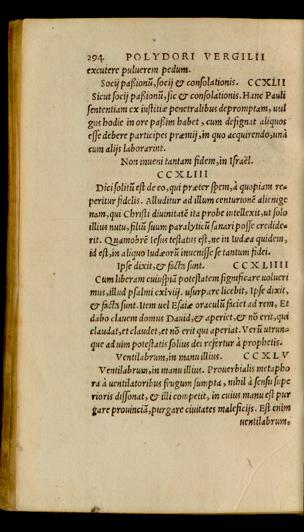 294 POLYDORI VERGILII
excutere puluerem pedum.
Socij paßionũ, socij & consolationis. CCXLII
Sicut socij paßionũ, sic & consolationis. Hanc Pauli
sententiam ex iustitiæ penetralibus depromptam, uul
gus hodie in ore paßim habet, cum designat aliquos
esse debere participes præmij, in quo acquirendo, unà
cum alijs laborarint.
Non inueni tantam fidem, in Israël.
CCXLIII
Dici solitũ est de eo, qui præter spem, à quopiam re-
peritur fidelis. Alluditur ad illum centurionẽ alienige
nam, qui Christi diuinitatẽ ita probe intellexit, ut solo
illius nutu, filiũ suum paralyticũ sanari posse credide-
rit. Quamobrẽ Iesus testatus est, ne in Iudæa quidem,
id est, in aliquo Iudæorũ inuenisse se tantum fidei.
Ipse dixit, & facta sunt. CCXLIIII
Cum liberam cuiuspiã potestatem significare uoluerimus,
mus, illud psalmi cxlviij. usurpare licebit, Ipse dixit,
& facta sunt. Item uel Esaiæ oraculũ faciet ad rem, Et
dabo clauem domus Dauid, & aperiet, & nõ erit, qui
claudat, et claudet, et nõ erit qui aperiat. Verũ utrun-
que ad uim potestatis solius dei refertur à prophetis.
Ventilabrum, in manu illius. CCXLV
Ventilabrum, in manu illius. Prouerbialis metapho
ra à uentilatoribus frugum sumpta, nihil à sensu supe
rioris dissonat, & illi competit, in cuius manu est pur
gare prouinciã, purgare ciuitates maleficijs. Est enim
uentilabrum.